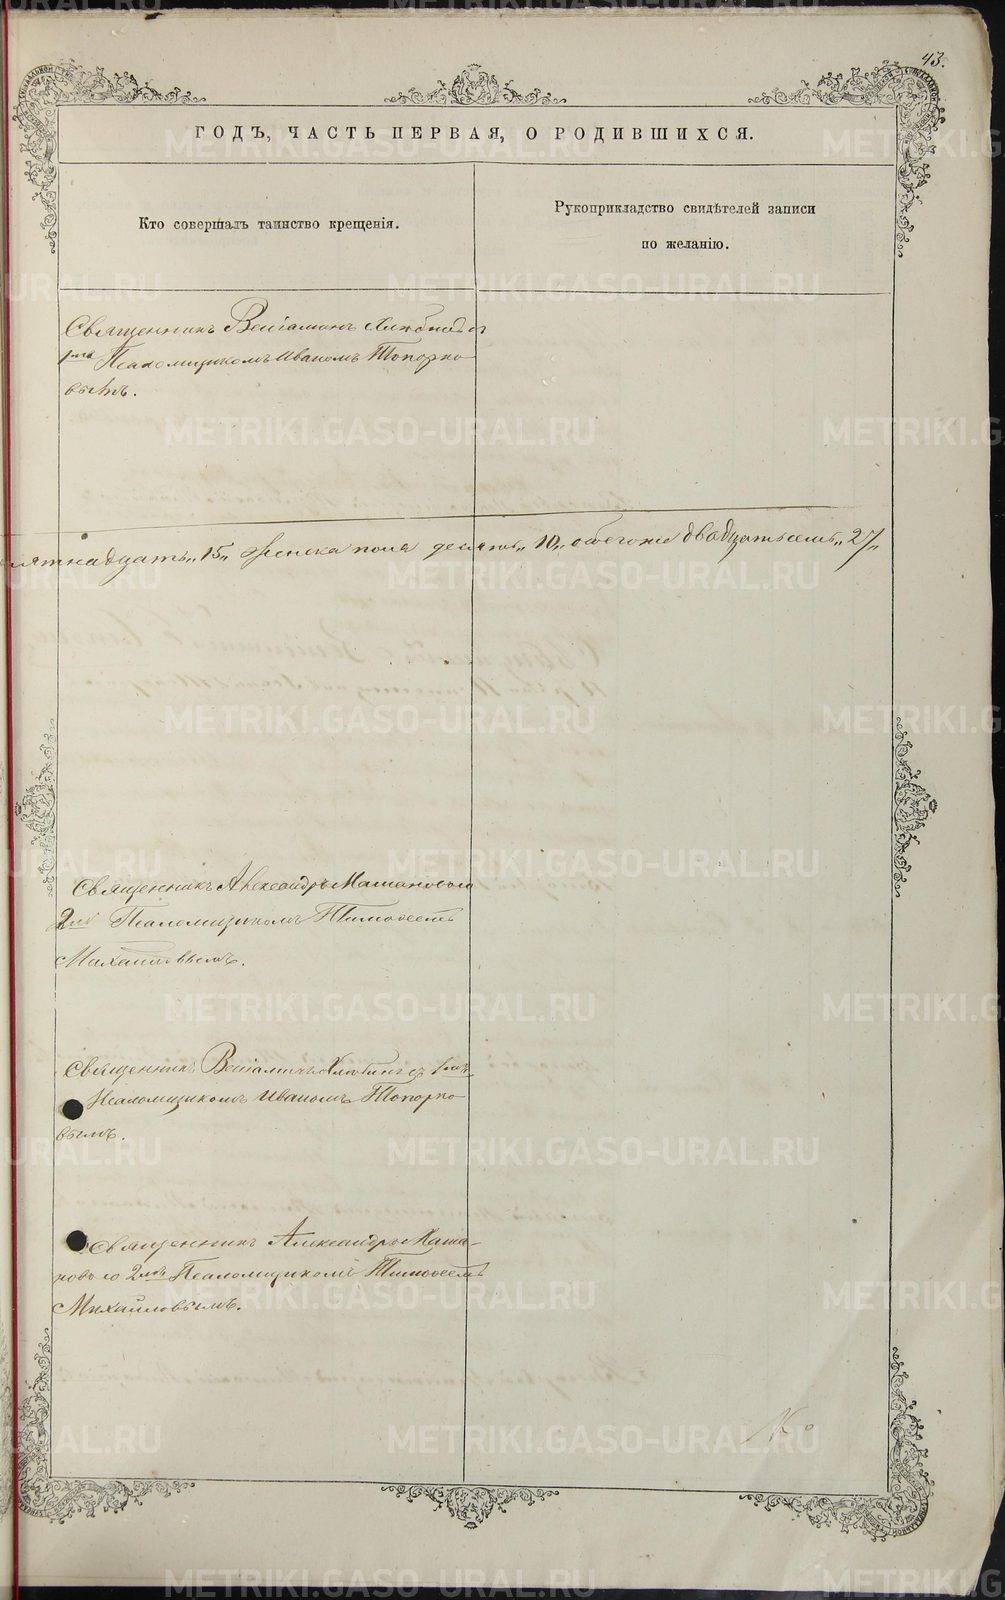 43.
ГОДЪ, ЧАСТЬ ПЕРВАЯ, О РОДИВШИХСЯ.
Кто совершалъ таинство крещенія.
Рукоприкладство свидѣтелей записи
по желанію.
Священникъ Веніаминъ Хлѣбинъ съ
1мъ Псаломщикомъ Иваномъ Топорко
вымъ.
пятнадцать „15„ женска пола десять „10„ обоего же двадцать семь „27„
Священникъ Александръ со
2мъ Псаломщикомъ Тимоѳеемъ
Михайловымъ.
Священникъ Веніаминъ Хлѣбинъ съ 1мъ
Псаломщикомъ Иваномъ Топорко
вымъ.
Священникъ Александръ
со 2мъ Псаломщикомъ Тимоѳеемъ
Михайловымъ.
METRIKI.GASO-URAL.RU